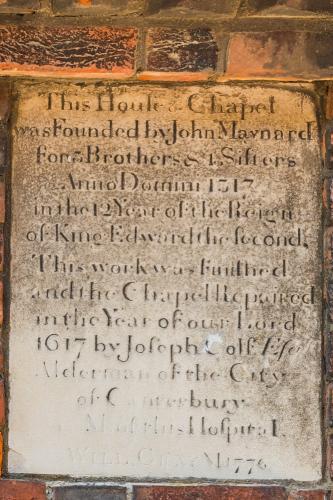 This House & Chapel
was Founded by John Maynard
for 3 Brothers & 4 Sisters
Anno Domini 1317
in the 12 Year of the Reign
of King Edward the second.
This work was finished
and the Chapel Repaired
in the Year of our Lord
1617 by Joseph Colf Esqr
Alderman of the City
of Canterbury
Mr of this Hospital.
WILL 1776